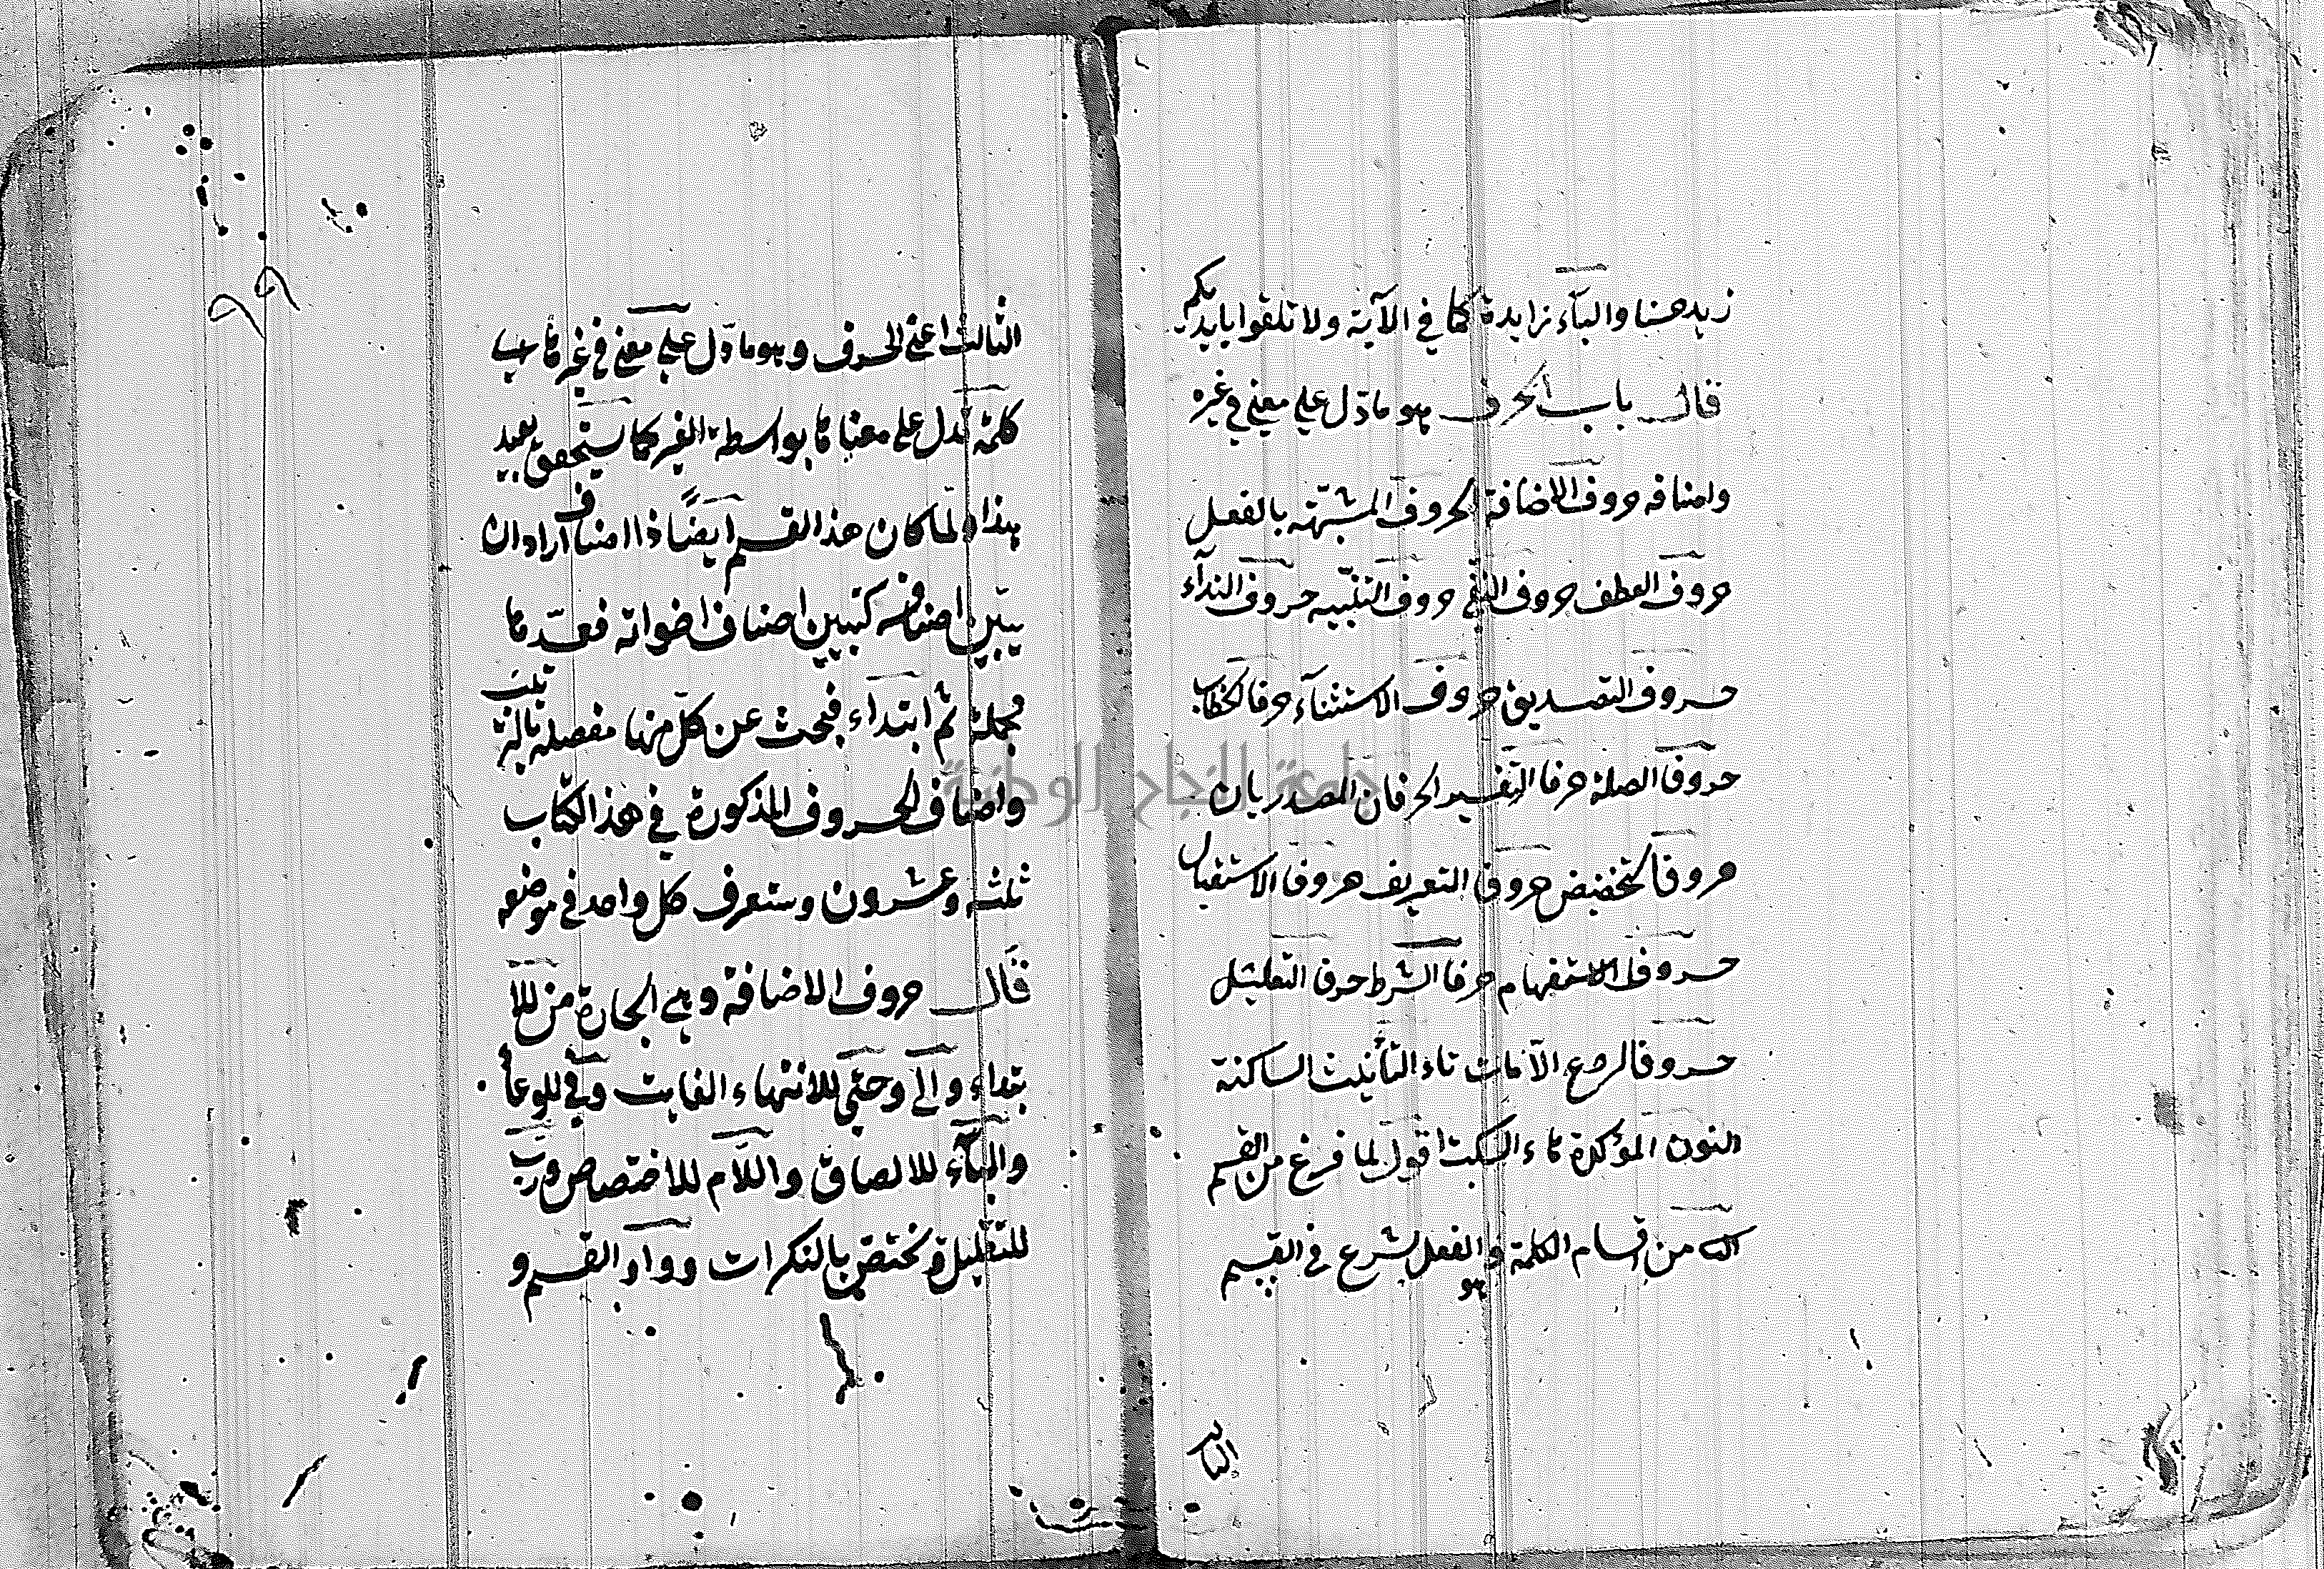 زيد هنا والبآء زايدة كما في الآية ولا تلقوا بايديكم
قال باب الحرف هو ما دّل على معنى في غيره
واصنافه حروف الاضافة الحروف المشبّهه بالفعل
حروف العطف حروف النفي حروف التنبيه حروف النداء
حروف التصديق حروف الاستثنآء حرفا الخطاب
حروف الصلة حرفا التفسير الحرفان المصدريان
حروف التخضيض حروف التعريف حروف الاستقبال
حروف الاستفهام حرفا الشرط حرف التعليل
حروف الردع الآمات تاء التأنيث الساكنة
النون المؤكدة هاء السكت اقول لما فرغ من القسم
الثا من اقسام الكلمة وهو الفعل شرع في القسم
الثالث
الثالث اعني الحرف وهو ما دّل على معنى في غيره اى
كلمة تدل على معناها بواسطة الغير كما ستحقق بعيد
هذا ولما كان هذا القسم ايضًا ذا اصناف اراد ان
يبيّن اصنافه كتبيين اصناف اخواته فعدّها
مجملة ثم ابتداء فبحث عن كلّ منها مفصلة
واصناف الحروف المذكورة في هذا الكتاب
ثلثه وعشرون وستعرف كل واحد في موضعه
قال حروف الاضافة وهي الجارة من للا
بتداء والى وحتى للانتهاء الغايت وفي للوعا
والبآء للالصاق واللام للاختصاص وربّ
للتقليل وتختص بالنكرات وواو القسم و
جامعة النجاح الوطنية